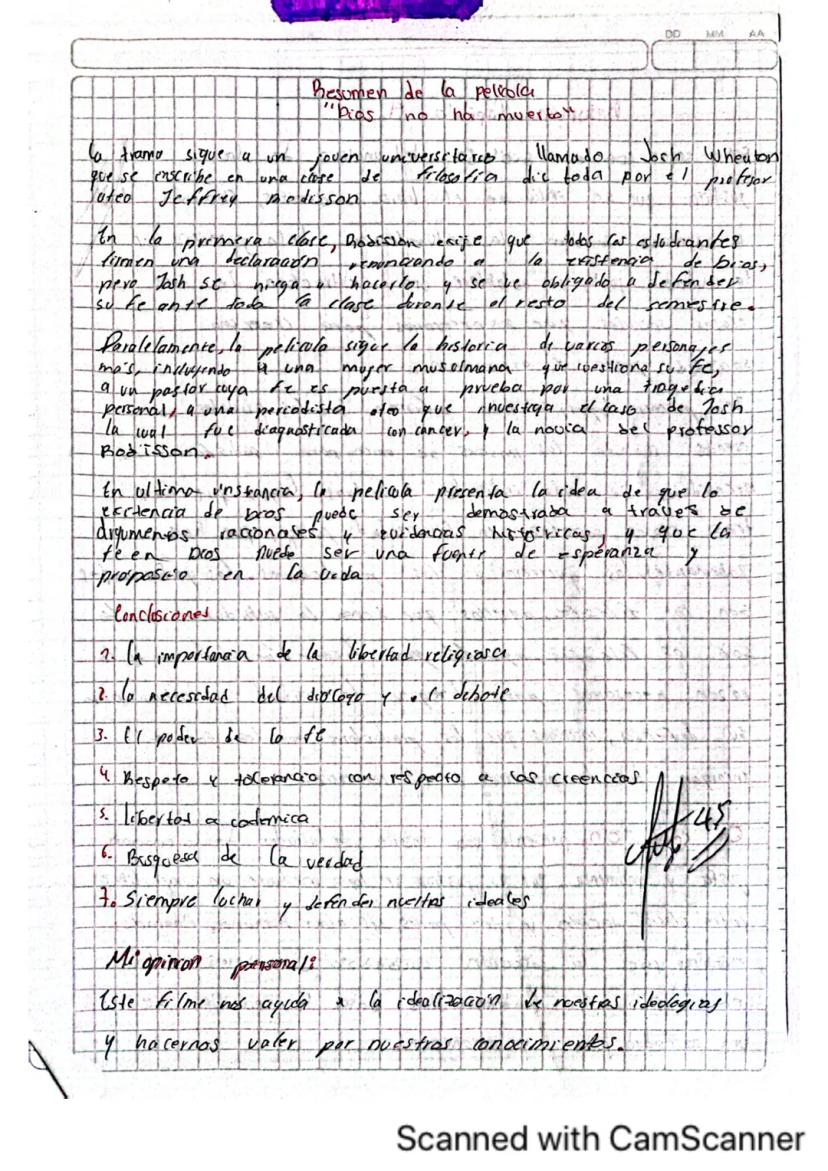 DD MM AA
Resumen de la película
"Dios no ha muerto"
la trama sigue a un joven universitario llamado Josh Wheaton
que se inscribe en una clase de filosofía dictada por el profesor
ateo Jeffrey Radisson
En la primera clase, Radisson exige que todos los estudiantes
firmen una declaración renunciando a la existencia de Dios,
pero Josh se niega a hacerlo y se ve obligado a defender
su fe ante toda la clase durante el resto del semestre.
Paralelamente, la película sigue la historia de varios personajes
más, incluyendo a una mujer musulmana que cuestiona su fe,
a un pastor cuya fe es puesta a prueba por una tragedia
personal, a una periodista atea que investiga el caso de Josh
la cual fue diagnosticada con cáncer, y la novia del professor
Radisson.
En ultima instancia, la película presenta la idea de que la
existencia de Dios puede ser demostrada a través de
argumentos racionales y evidencias históricas, y que la
fe en Dios puede ser una fuente de esperanza y
proposcio en la vida
Conclusiones
1. La importancia de la libertad religiosa
2. la necesidad del dialogo y el debate
3. El poder de la fe
4. Respeto y tolerancia con respecto a las creencias
5. libertad academica
6. Busqueda de la verdad
7. Siempre luchar y defender nuestros ideales
45
Mi opinion personal:
Este filme nos ayuda a la idealización de nuestras ideologias
y hacernos valer por nuestros conocimientos.
Scanned with CamScanner